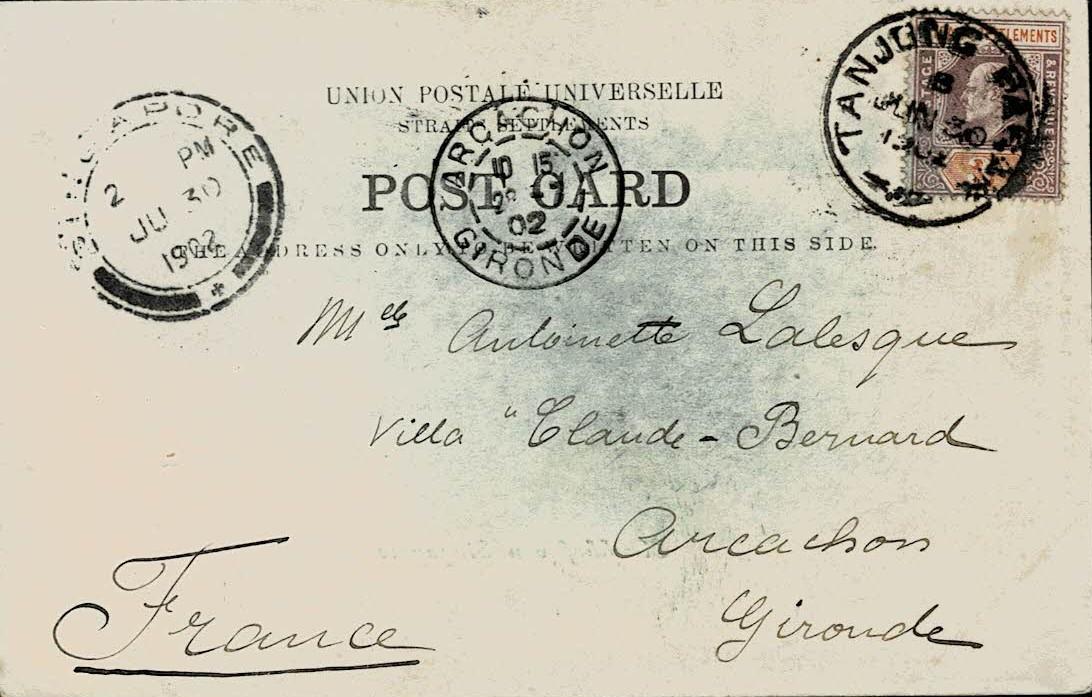 UNION POSTALE UNIVERSELLE
STRAITS SETTLEMENTS
POST CARD
THE ADDRESS ONLY TO BE WRITTEN ON THIS SIDE.
SINGAPORE
2 PM
JU 30
1902
*
ARCACHON
10 15
02
GIRONDE
TANJONG PAGAR
B
JUN 30
1902
SETTLEMENTS
& REVENUE
Melle Antoinette Lalesque
Villa "Claude-Bernard
Arcachon
Gironde
France